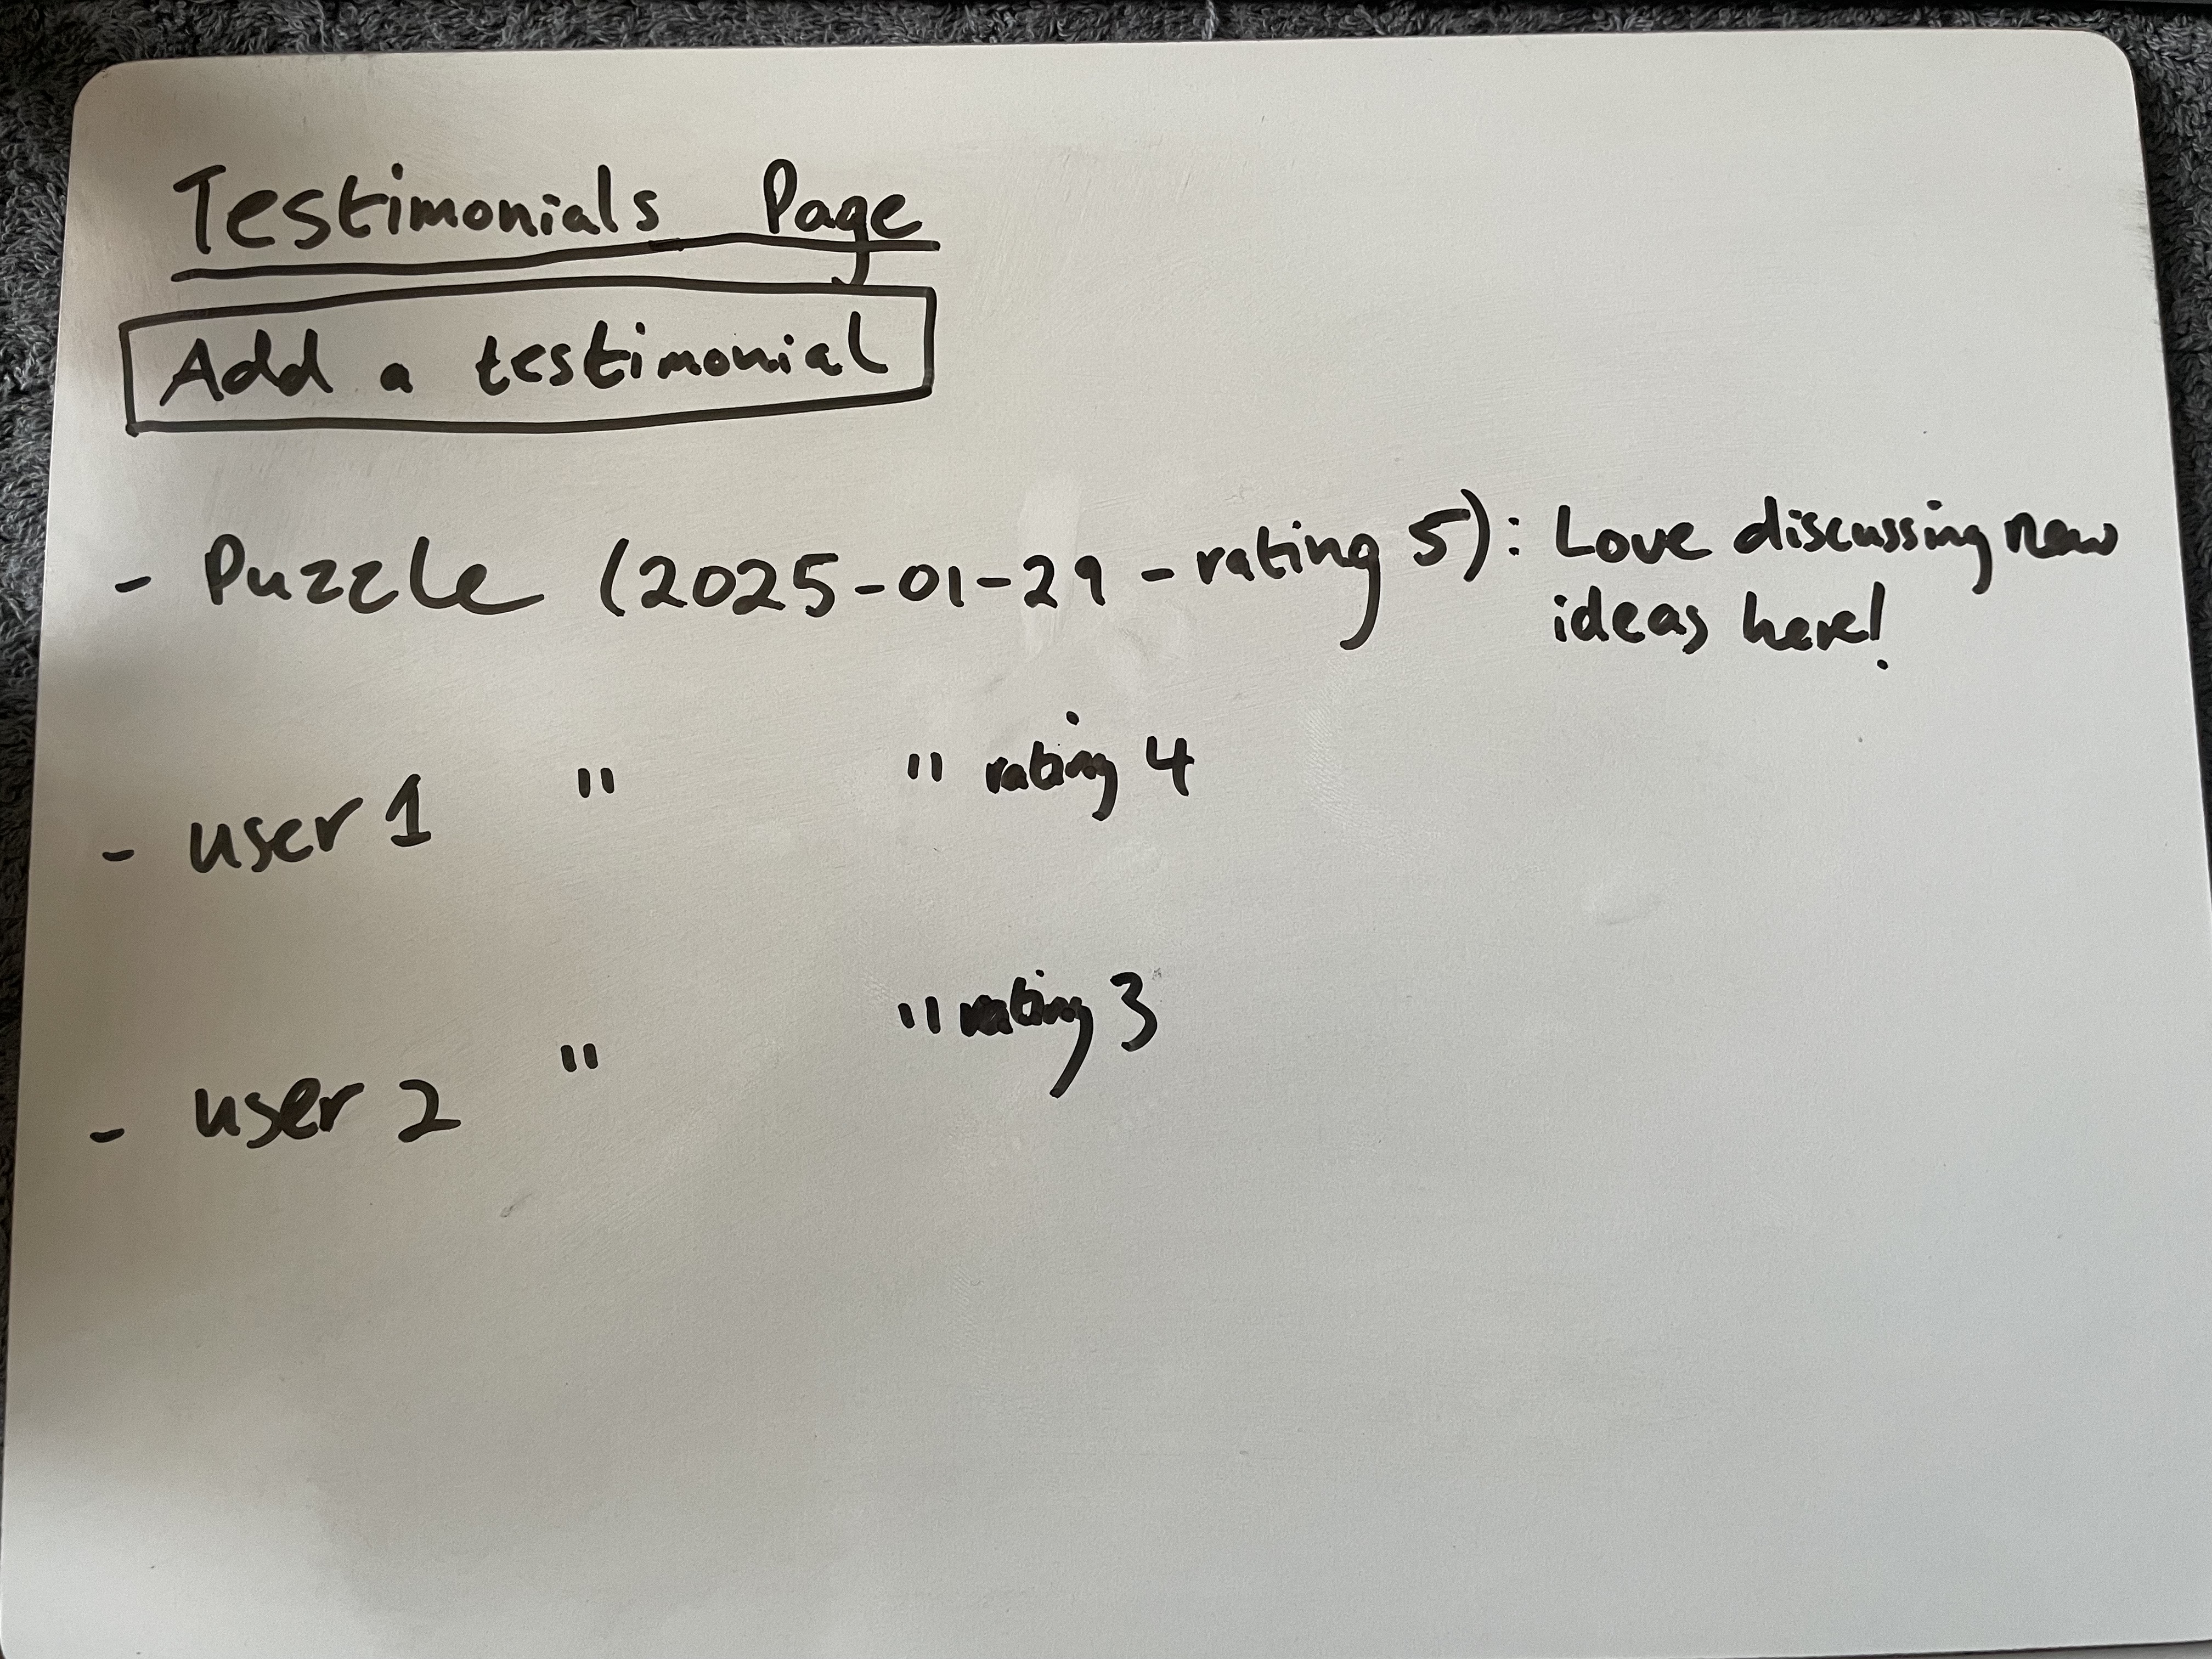 Testimonials Page
Add a testimonial
- Puzzle (2025-01-29 - rating 5): Love discussing new
ideas here!
- user 1 " " rating 4
- user 2 " " rating 3